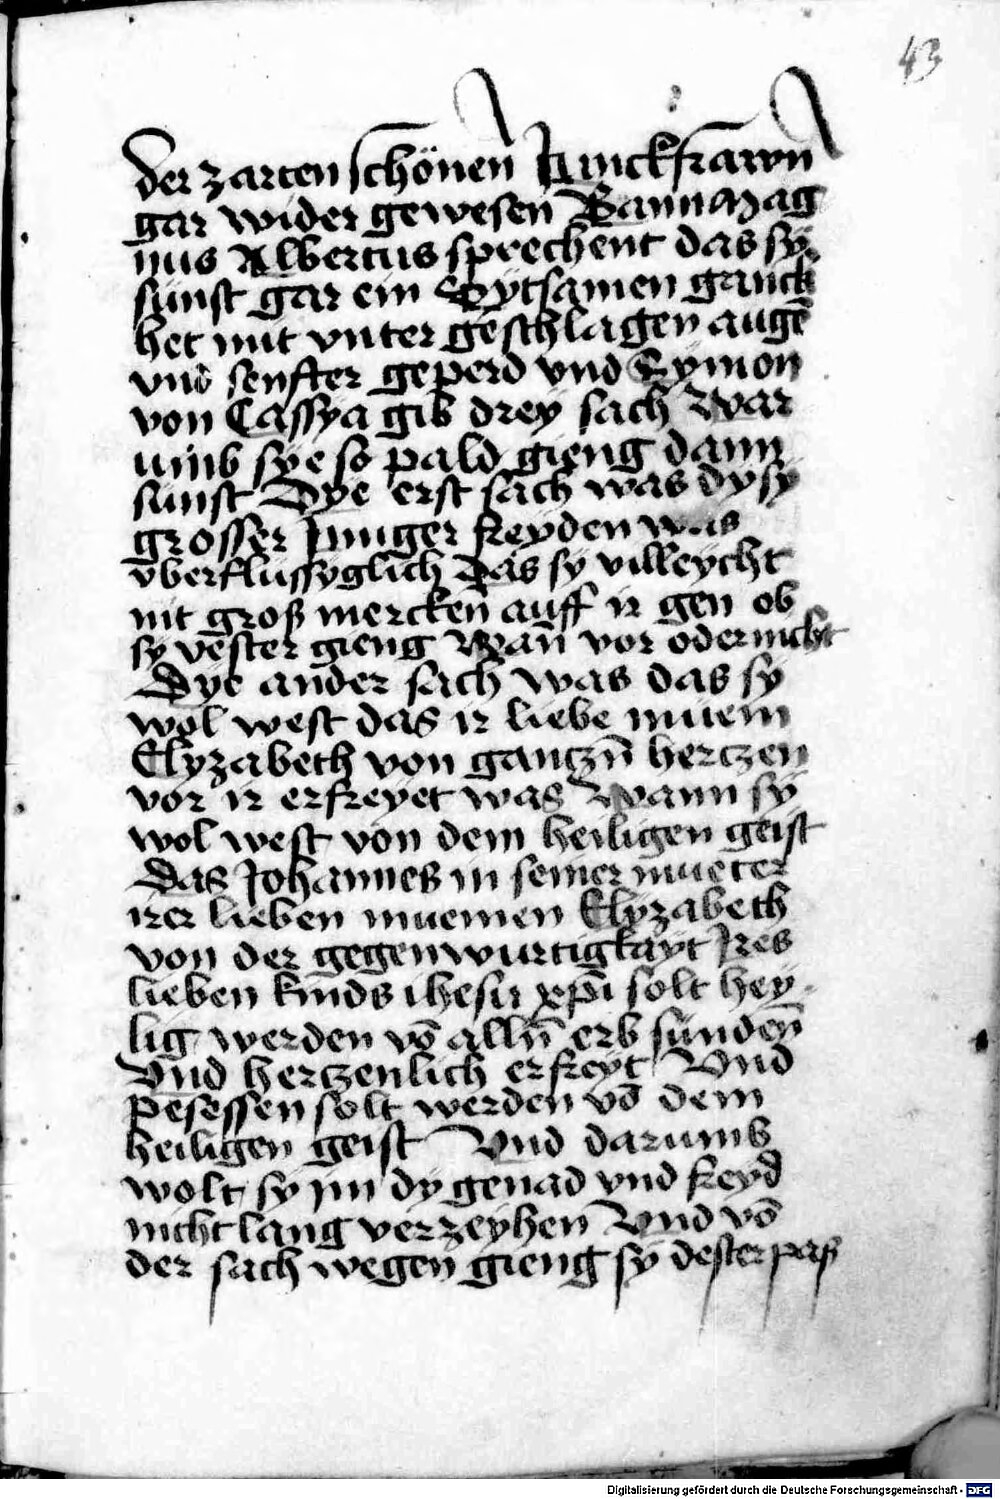 43
der zarten schönen Junckfrawn
gar wider gewesen Wann Mag
nus Albertus sprechent das sÿ
sünst gar ein Sytsamen ganck
het mit vnter geschlagen augē
vnd senfter geperd vnd Sÿmon
von Cassÿa gib dreÿ sach War
umb sÿe so pald gieng dann
sünst Dÿe erst sach was dÿ sÿ
grosser Inniger freÿden was
vberflussÿglich Das sÿ villeÿcht
nit groß mercken auff ir gen ob
sÿ vester gieng Wan̄ vor oder nicht
Dÿe ander sach was das sÿ
wol west das ir liebe muem
Elÿzabeth von gantzn̄ hertzen
vor ir erfreÿet was Wann sÿ
wol west von dem heiligen geist
Das Johannes in seiner mueter
irer lieben muemen Elÿzabeth
von der gegenwurtigkaÿt Ires
lieben kinds ihesu xp̄i solt heÿ
lig werden vō alln̄ erb sünden̄
Vnd hertzenlich erfreÿt Vnd
pesessen solt werden vō dem
heiligen geist Vnd darumb
wolt sÿ im dÿ genad vnd freÿd
nicht lang verzeÿhen Vnd vō
der sach wegen gieng sÿ dester pas
Digitalisierung gefördert durch die Deutsche Forschungsgemeinschaft - DFG